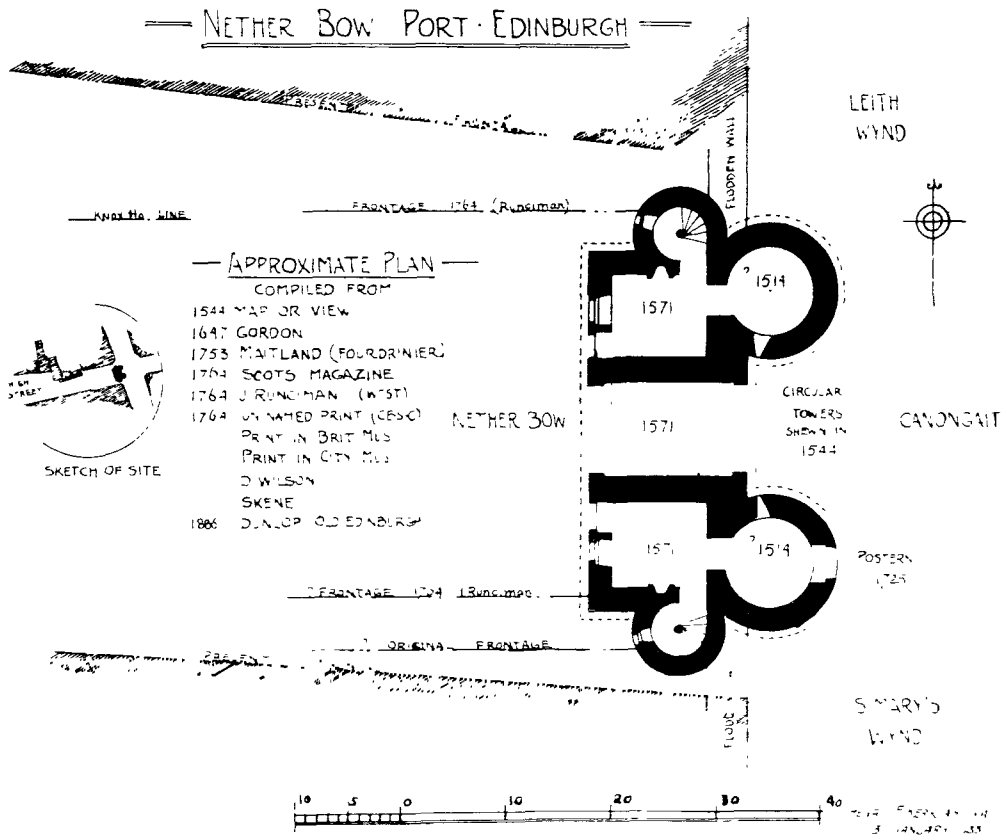 NETHER BOW PORT · EDINBURGH
LEITH
WYND
PRESENT
FLODDEN WALL
KNOX HO. LINE
FRONTAGE 1764 (Runciman)
APPROXIMATE PLAN
COMPILED FROM
1544 MAP OR VIEW
1647 GORDON
1753 MAITLAND (FOURDRINIER)
1764 SCOTS MAGAZINE
1764 J RUNCIMAN (WEST)
1764 UNNAMED PRINT (EAST)
PRINT IN BRIT MUS
PRINT IN CITY MUS
D WILSON
SKENE
1886 DUNLOP OLD EDINBURGH
HIGH
STREET
SKETCH OF SITE
1571
? 1514
NETHER BOW
1571
CIRCULAR
TOWERS
SHEWN IN
1544
CANONGAIT
1571
? 1514
POSTERN
? FRONTAGE 1764 (Runciman)
? ORIGINAL FRONTAGE
PRESENT
S MARY'S
WYND
10 5 0 10 20 30 40
JANUARY